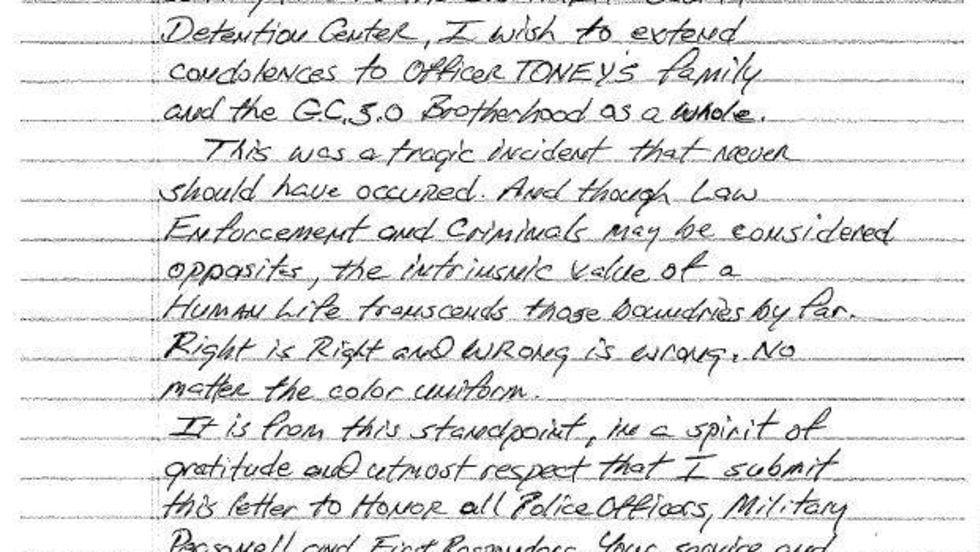 Detention Center, I wish to extend
condolences to Officer TONEY'S family
and the G.C.S.O Brotherhood as a whole.
This was a tragic incident that never
should have occured. And though Law
Enforcement and Criminals may be considered
opposites, the intrinsnic value of a
HUMAN Life transcends those boundries by far.
Right is Right and WRONG is wrong. No
matter the color uniform.
It is from this standpoint, in a spirit of
gratitude and utmost respect that I submit
this letter to HONOR all Police Officers, Military
Personell and First Responders. Your service and